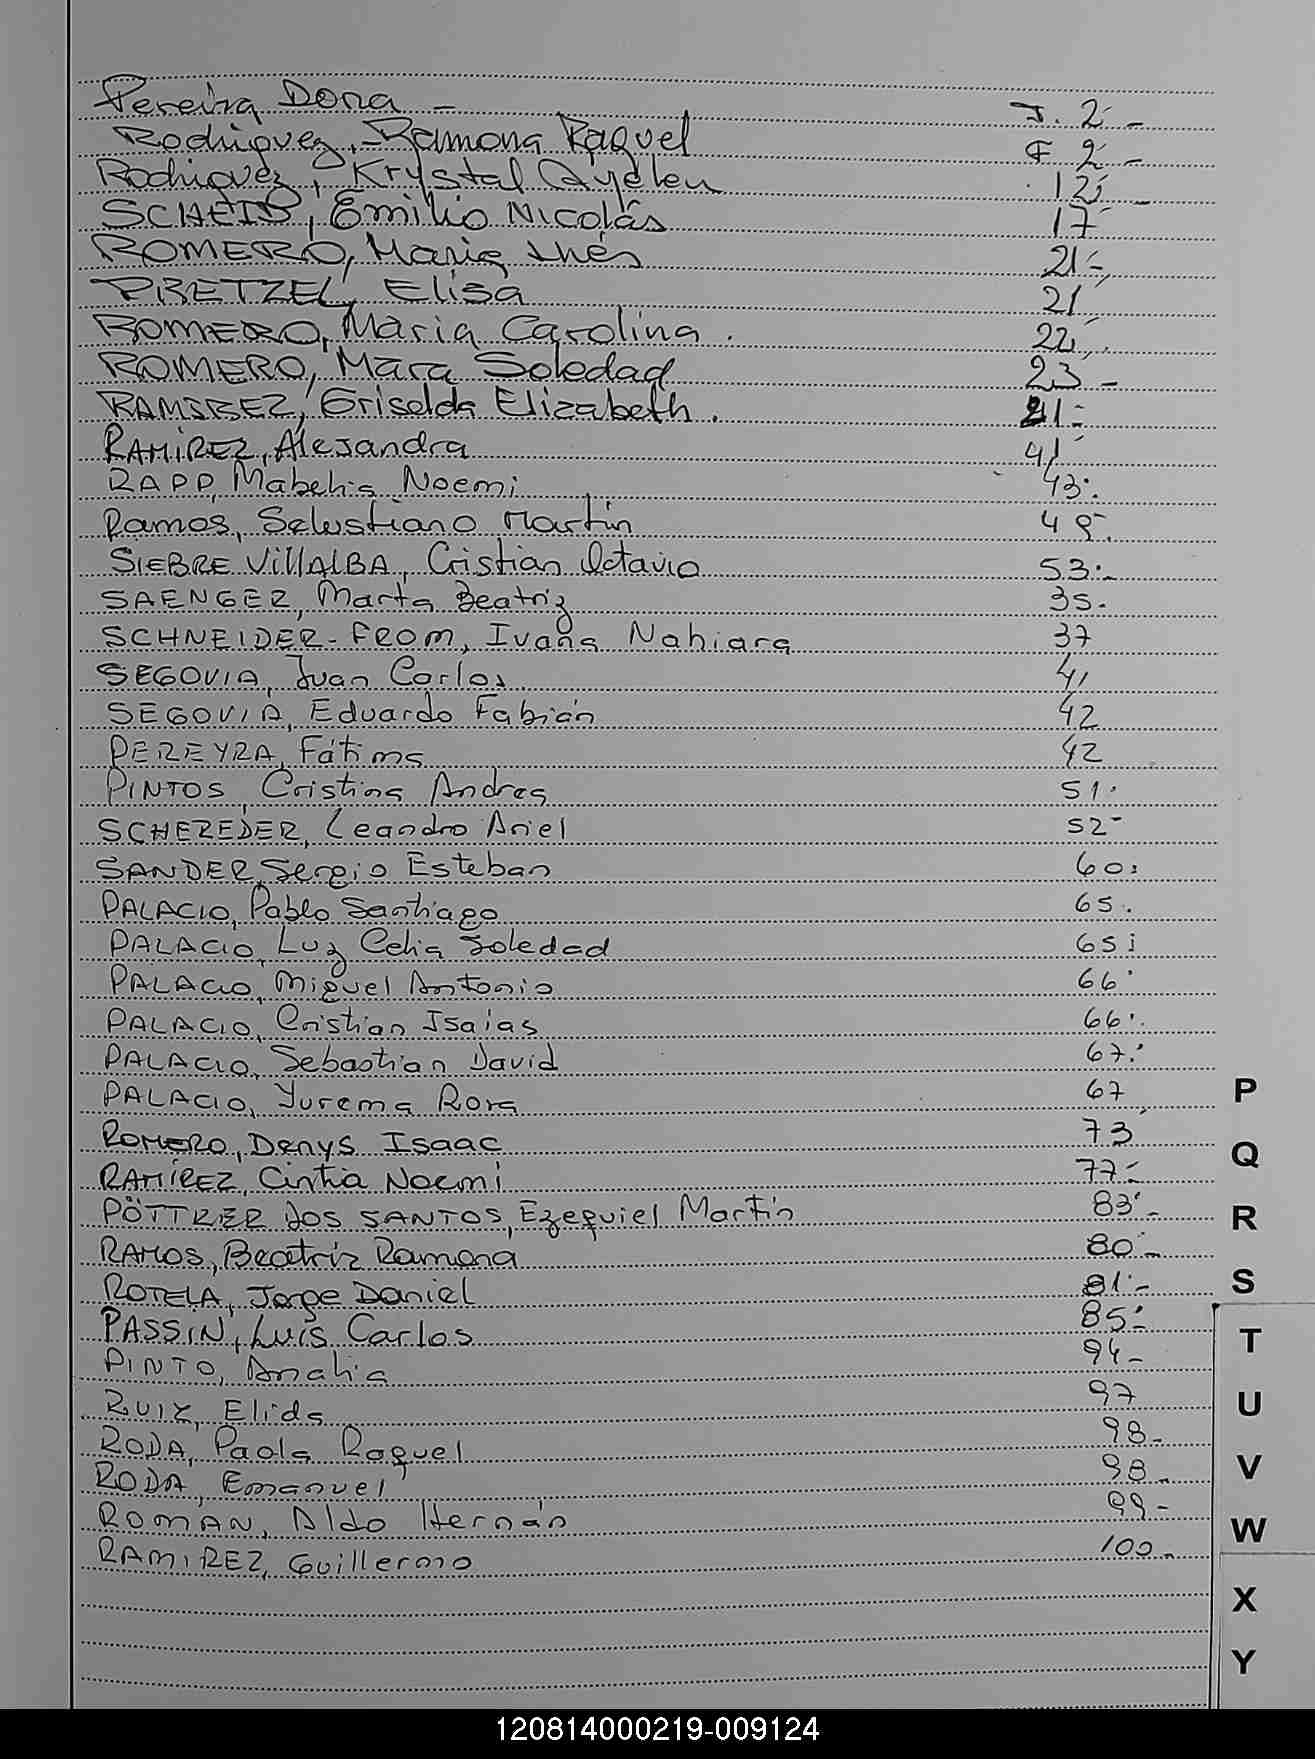 Pereira Dora - F. 2 -
Rodriguez, - Ramona Raquel F 2 -
Rodriguez, Krystal Ayelen 12
SCHEID, Emilio Nicolás 17
ROMERO, Maria Inés 21 -
PRETZEL, Elisa 21
ROMERO, Maria Carolina . 22
ROMERO, Mara Soledad 23 -
RAMIREZ, Griselda Elizabeth . 41 -
RAMÍREZ, Alejandra 41
RAPP, Mabelia Noemi 43.
Ramos, Selustiano Martín 49.
SIEBRE VillALBA, Cristian Octavio 53 -
SAENGER, Marta Beatriz 35.
SCHNEIDER-FROM, Ivana Nahiara 37
SEGOVIA, Juan Carlos 41
SEGOVIA, Eduardo Fabián 42
PEREYRA, Fátima 42
PINTOS, Cristina Andrea 51
SCHEREDER, Leandro Ariel 52 -
SANDER, Sergio Esteban 60.
PALACIO, Pablo Santiago 65.
PALACIO, Luz Celia Soledad 65
PALACIO, Miguel Antonio 66
PALACIO, Cristian Isaías 66.
PALACIO, Sebastian David 67.
PALACIO, Yurema Rosa 67
ROMERO, Denys Isaac 73
RAMÍREZ, Cintia Noemi 77 -
PÖTTKER DOS SANTOS, Ezequiel Martín 83 -
RAMOS, Beatriz Ramona 80 -
ROTELA, Jorge Daniel 81 -
PASSIN, Luis Carlos 85 -
PINTO, Analia 94 -
RUIZ, Elida 97
RODA, Paola Raquel 98 -
RODA, Emanuel 98 -
ROMAN, Aldo Hernán 99 -
RAMIREZ, Guillermo 100 -
P
Q
R
S
T
U
V
W
X
Y
120814000219-009124